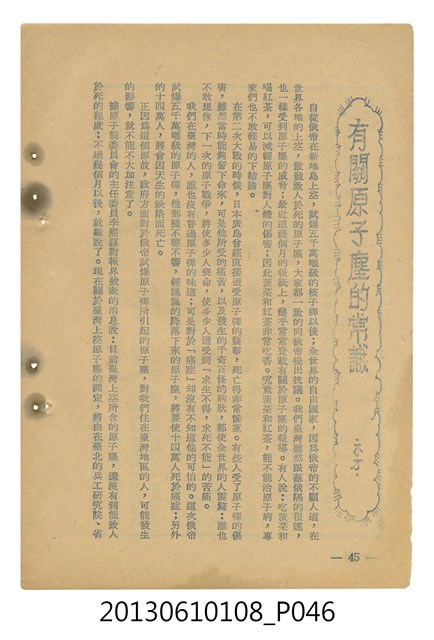 有關原子塵的常識
自從俄帝在新地島上空,試爆五千萬噸級的核子彈以後;全世界的自由國家,因爲俄帝的不顧人道,在
世界各地的上空,散發致人於死的原子塵,大家都一致的向俄帝提出抗議。我們臺灣雖然跟蘇俄隔的很遠,
也一樣受到原子塵的威脅;最近這幾個月的報紙上,幾乎常常登載有關於原子塵的報導。有人說:吃菠菜和
喝紅茶,可以減輕原子塵對人體的傷害;因此菠菜和紅茶非常吃香。究竟菠菜和紅茶,能不能治原子病,專
家們也不敢輕易的下結論。
在第二次大戰的時候,日本廣島曾經直接遭受原子彈的襲擊,死亡得非常慘重。有些人受了原子彈的傷
害,雖然當時能夠留下命來,可是他所受的痛苦,以及發生的千奇百怪的病狀,都使全世界的人震驚;誰也
不敢想像,下一次的原子戰爭,將使多少人喪命,使多少人遭受到「求生不得,求死不能」的苦痛。
我們在臺灣的人,誰也沒有嘗過原子彈的味道;可是對於「癌症」却沒有不知道他的可怕的。這次俄帝
試爆五千萬噸級的原子彈,他那種不聲不響,輕飄飄的降落下來的原子塵,將要使十四萬人死於癌症;另外
的十四萬人,將會因天生的缺陷而死亡。
正因爲這個原故,政府方面對於俄帝試爆原子彈所引起的原子塵,對我們住在臺灣地區的人,可能發生
的影響,就不能不加注意了。
據原子能委員會的主任委員李熙謀對報界發表的消息說:目前臺灣上空所含的原子塵,還沒有到能致人
於死的程度;不過幾個月以後,就難說了。現在關於臺灣上空原子塵的測定,將由在臺北的兵工研究院、省
— 45 —
20130610108_P046